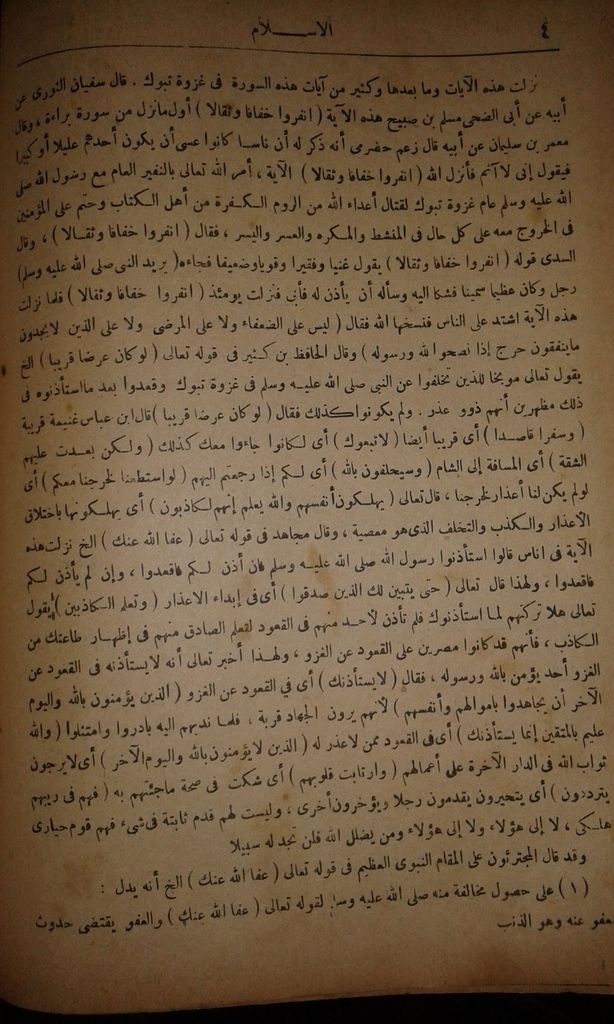 ٤
الاســـلام
نزلت هذه الآيات وما بعدها وكثير من آيات هذه السورة فى غزوة تبوك . قال سفيان الثورى عن
أبيه عن أبى الضحى مسلم بن صبيح هذه الآية ( انفروا خفافا وثقالا ) أول مانزل من سورة براءة ، وقال
معمر بن سليمان عن أبيه قال زعم حضرمى أنه ذكر له أن ناسا كانوا عسى أن يكون أحدهم عليلا أو كبيرا
فيقول إنى لا آثم فأنزل الله ( انفروا خفافا وثقالا ) الآية ، أمر الله تعالى بالنفير العام مع رسول الله صلى
الله عليه وسلم عام غزوة تبوك لقتال أعداء الله من الروم الكفرة من أهل الكتاب وحتم على المؤمنين
فى الخروج معه على كل حال فى المنشط والمكره والعسر واليسر ، فقال ( انفروا خفافا وثقالا ) ، وقال
السدى قوله ( انفروا خفافا وثقالا ) يقول غنيا وفقيرا وقويا وضعيفا فجاءه ( يريد النبى صلى الله عليه وسلم )
رجل وكان عظيما سمينا فشكا اليه وسأله أن يأذن له فأبى فنزلت يومئذ ( انفروا خفافا وثقالا ) فلما نزلت
هذه الآية اشتد على الناس فنسخها الله فقال ( ليس على الضعفاء ولا على المرضى ولا على الذين لايجدون
ماينفقون حرج إذا نصحوا لله ورسوله ) وقال الحافظ بن كثير فى قوله تعالى ( لو كان عرضا قريبا ) الخ
يقول تعالى موبخا للذين تخلفوا عن النبى صلى الله عليه وسلم فى غزوة تبوك وقعدوا بعد ما استأذنوه فى
ذلك مظهرين أنهم ذوو عذر . ولم يكونوا كذلك فقال ( لو كان عرضا قريبا ) قال ابن عباس غنيمة قريبة
( وسفرا قاصدا ) أى قريبا أيضا ( لاتبعوك ) أى لكانوا جاءوا معك كذلك ( ولكن بعدت عليهم
الشقة ) أى المسافة إلى الشام ( وسيحلفون بالله ) أى لكم إذا رجعتم اليهم ( لو استطعنا لخرجنا معكم ) أى
لولم يكن لنا أعذار لخرجنا ، قال تعالى ( يهلكون أنفسهم والله يعلم إنهم لكاذبون ) أى يهلكونها باختلاق
الأعذار والكذب والتخلف الذى هو معصية ، وقال مجاهد فى قوله تعالى ( عفا الله عنك ) الخ نزلت هذه
الآية فى اناس قالوا استأذنوا رسول الله صلى الله عليه وسلم فان أذن لكم فاقعدوا ، وإن لم يأذن لكم
فاقعدوا ، ولهذا قال تعالى ( حتى يتبين لك الذين صدقوا ) أى فى إبداء الاعذار ( وتعلم الكاذبين ) يقول
تعالى هلا تركتهم لما استأذنوك فلم تأذن لأحد منهم فى القعود لتعلم الصادق منهم فى إظهار طاعتك من
الكاذب ، فأنهم قد كانوا مصرين على القعود عن الغزو ، ولهذا أخبر تعالى أنه لا يستأذنه فى القعود عن
الغزو أحد يؤمن بالله ورسوله ، فقال ( لايستأذنك ) أى في القعود عن الغزو ( الذين يؤمنون بالله واليوم
الآخر أن يجاهدوا باموالهم وأنفسهم ) لأنهم يرون الجهاد قربة ، فلما ندبهم اليه بادروا وامتثلوا ( والله
عليم بالمتقين إنما يستأذنك ) أى فى القعود ممن لاعذر له ( الذين لايؤمنون بالله واليوم الآخر ) أى لايرجون
ثواب الله فى الدار الآخرة على أعمالهم ( وارتابت قلوبهم ) أى شكت فى صحة ماجئتهم به ( فهم فى ريبهم
يترددون ) أى يتحيرون يقدمون رجلا ويؤخرون أخرى ، وليست لهم قدم ثابتة فى شىء فهم قوم حيارى
هلكى ، لا إلى هؤلاء ولا إلى هؤلاء ومن يضلل الله فلن تجد له سبيلا
وقد قال المجترئون على المقام النبوى العظيم فى قوله تعالى ( عفا الله عنك ) الخ أنه يدل :
( ١ ) على حصول مخالفة منه صلى الله عليه وسلم لقوله تعالى ( عفا الله عنك ) والعفو يقتضى حدوث
معفو عنه وهو الذنب